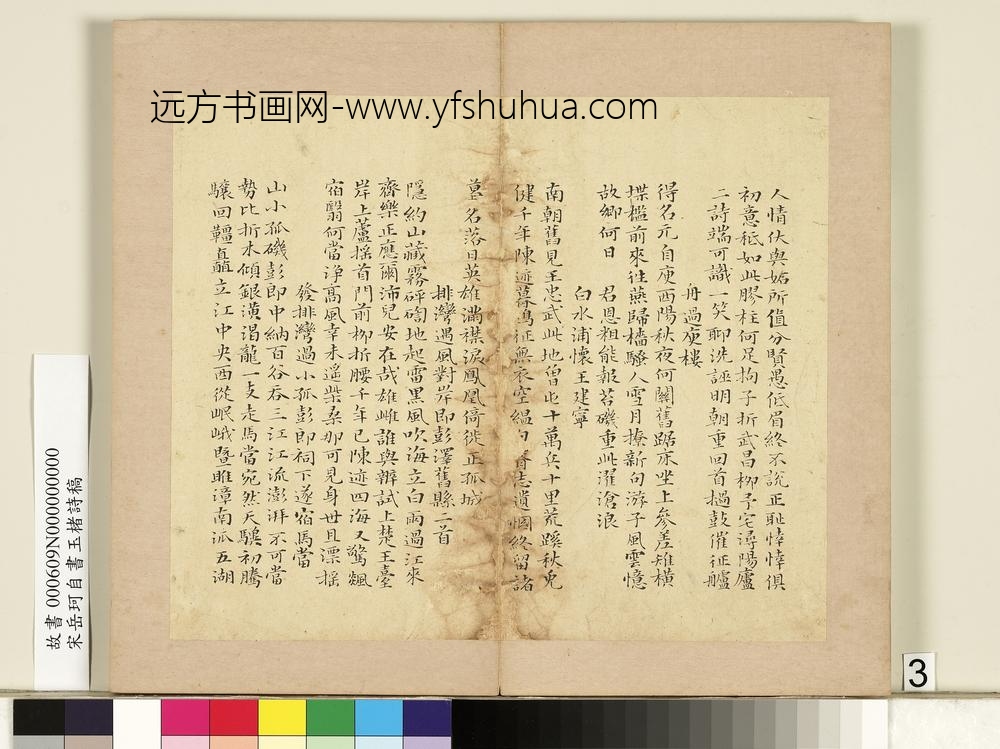 远方书画网-www.yfshuhua.com
人情伏與妬所值分賢愚低眉終不說正恥悻悻俱
初意秪如此膠柱何足拘予折武昌柳予宅尋陽廬
二詩端可識一笑聊洗誣明朝重回首撾鼓催征艫
舟過庾樓
得名元自庾西陽秋夜何關舊踞床坐上參差雉橫
堞檻前來往燕歸檣騷人雪月撩新句游子風雲憶
故鄉何日 君恩粗能報苔磯重此濯滄浪
白水浦懷王建寧
南朝舊見王忠武此地曾屯十萬兵十里荒蹊秋兎
健千年陳迹暮鴻征無衣空縕 志遺恨終留諸
墓名落日英雄滿襟淚鳳凰倚徙正孤城
排灣遇風對岸即彭澤舊縣二首
隱約山藏霧砰訇地起雷黑風吹海立白雨過江來
齊樂正應爾沛兒安在哉雄雌誰與辨試上楚王臺
岸上蘆搖首門前柳折腰千年已陳迹四海又驚飆
宿翳何當淨高風幸未遥柴桑那可見身世且漂搖
發排灣過小孤彭郎祠下遂宿馬當
山小孤磯彭郎中納百谷吞三江江流澎湃不可當
勢比折水傾銀潢渴龍一支走馬當宛然天驥初騰
驤回韁矗立江中央西從岷峨暨雎漳南派五湖
故書 000609N000000000
宋岳珂自書玉楮詩稿
3